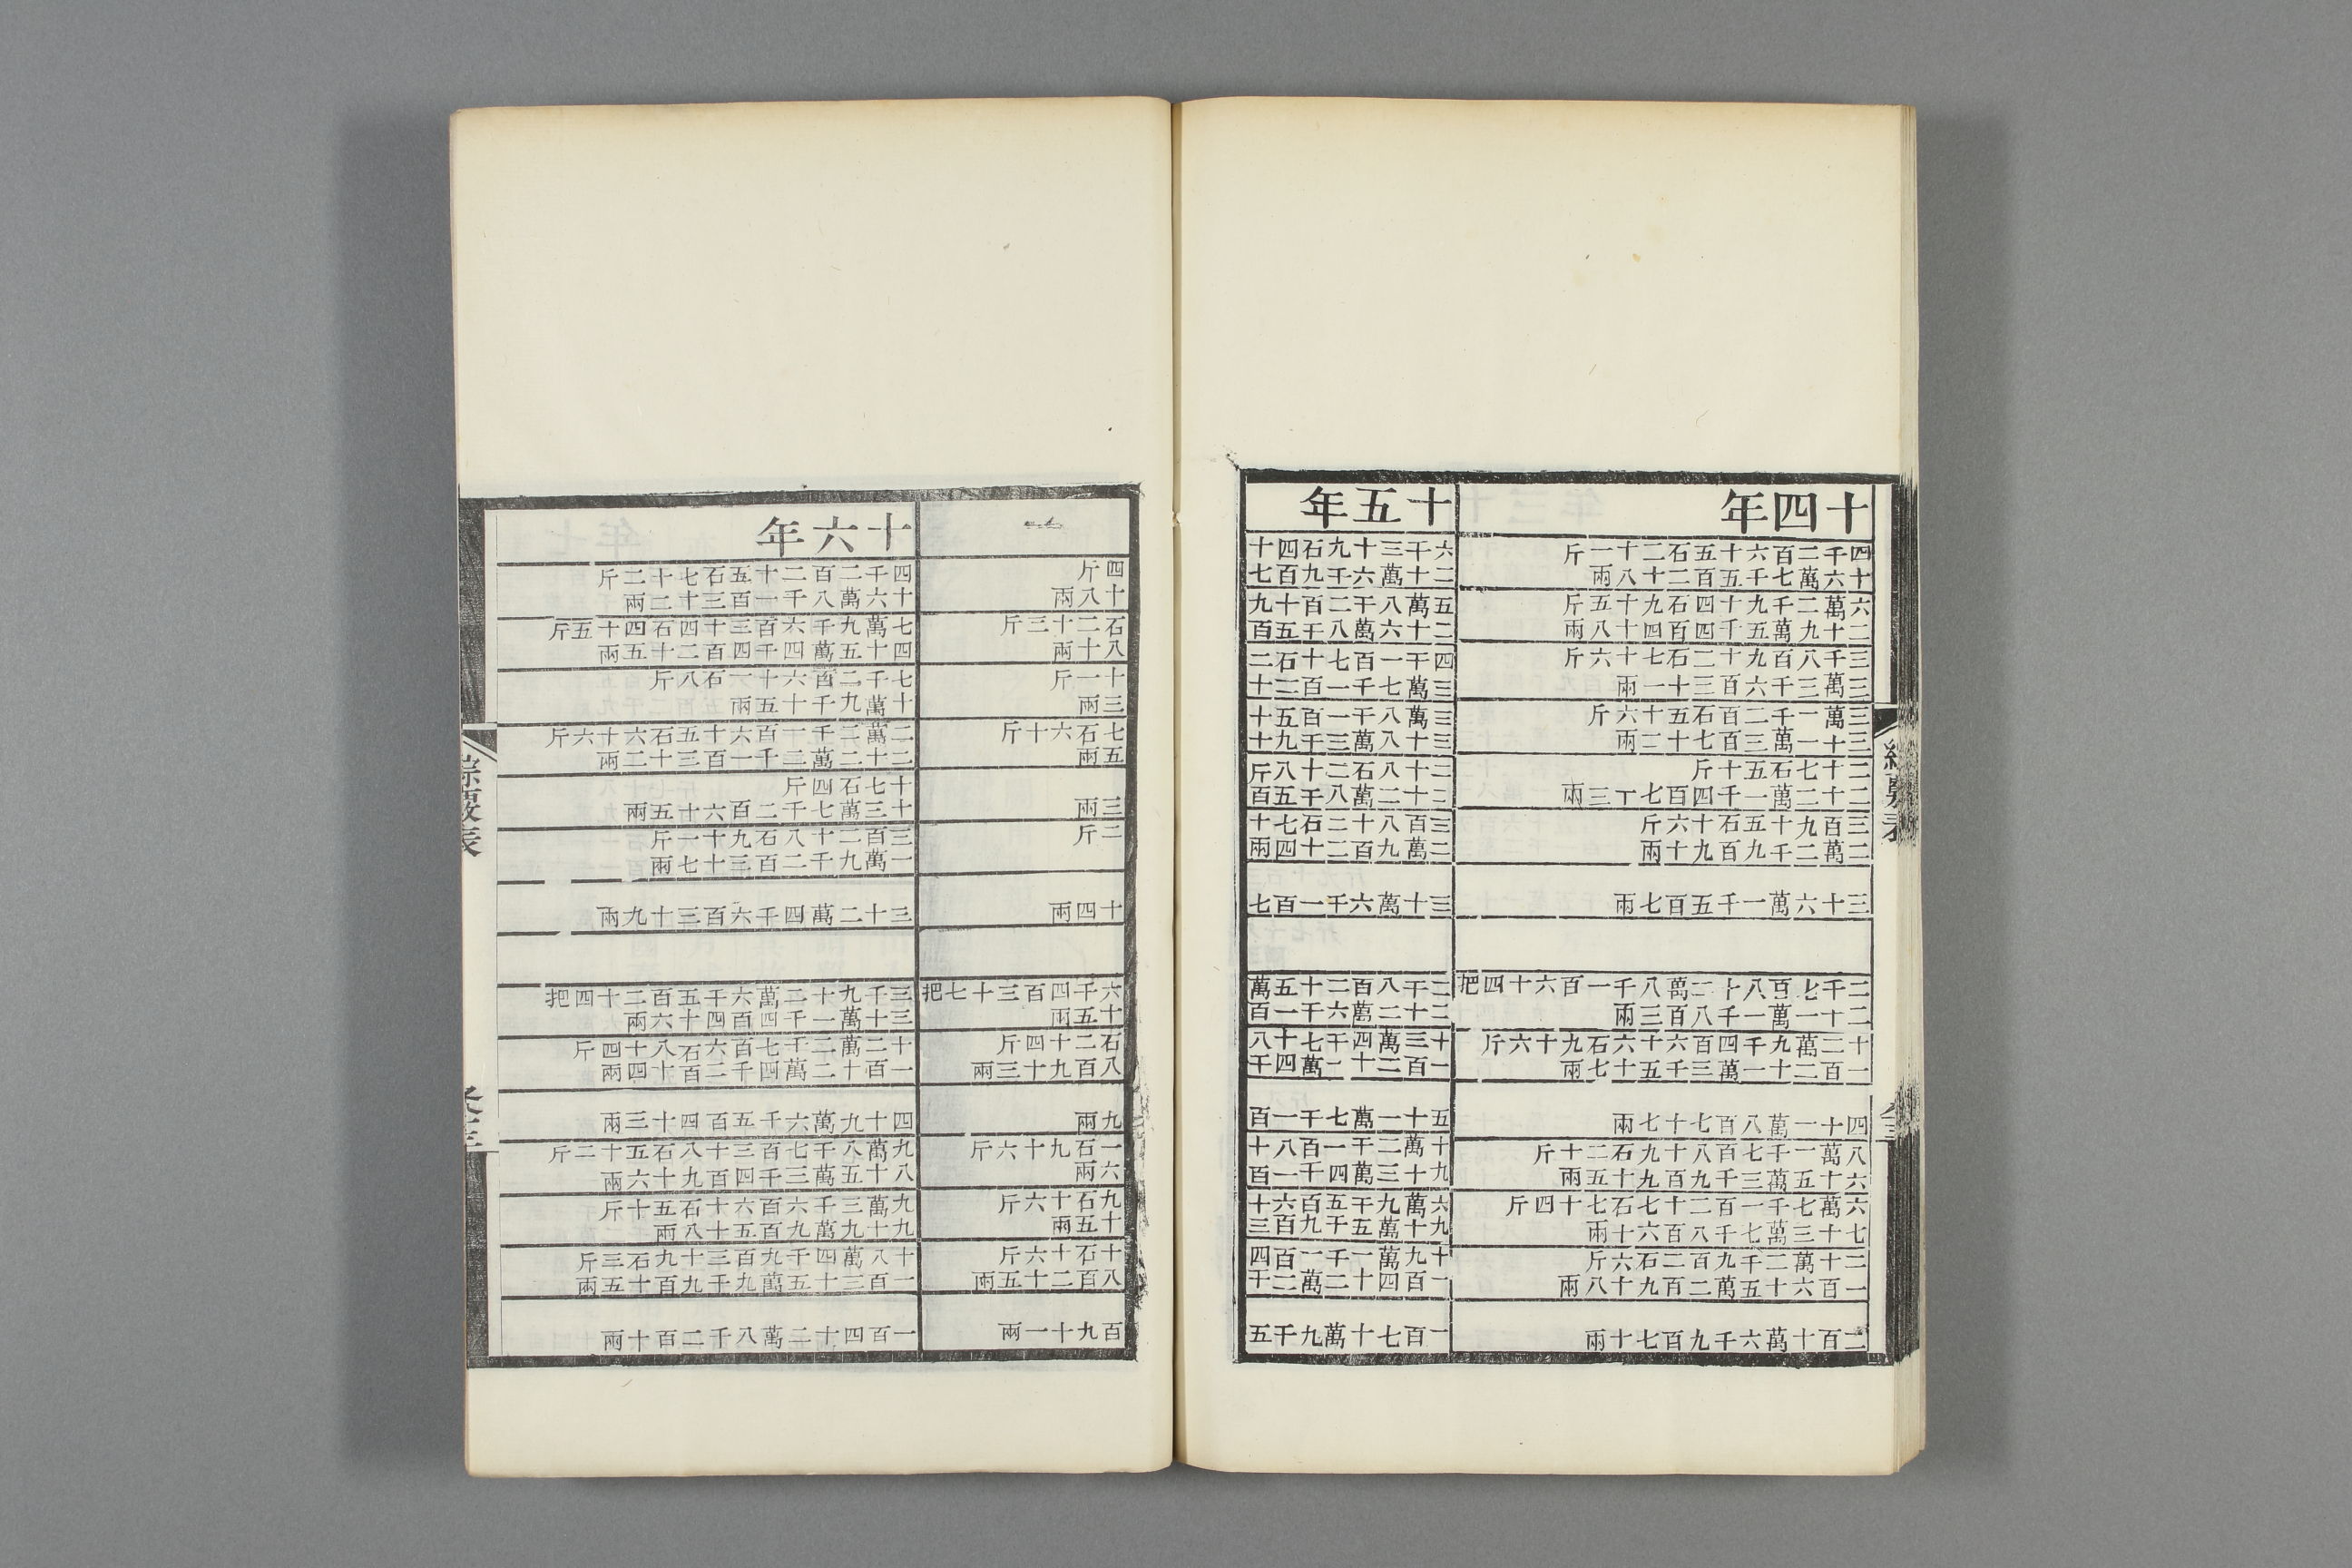 十四年
四千二百六十五石二十一斤
十六萬七千五百二十八兩
六萬二千九十四石九十五斤
二十九萬五千四百四十八兩
三千八百九十二石七十六斤
三萬三千六百三十一兩
三萬一千二百石五十六斤
三十一萬三百七十二兩
二十七石五十斤
二十二萬一千四百七十三兩
三百九十五石十六斤
二萬二千九百九十兩
三十六萬一千五百七兩
二千七百八十二萬八千一百六十四把
二十一萬一千八百三兩
十二萬九千四百六十六石九十六斤
一百二十一萬三千五十七兩
四十一萬八百七十七兩
八萬一千七百八十九石二十斤
六十五萬三千九百九十五兩
六萬七千一百二十七石七十四斤
七十三萬七千八百六十兩
三十萬二千九百二石六斤
一百六十五萬二百九十八兩
二百十萬六千九百七十兩
十五年
六千三十九石四十
二十萬六千九百七
五萬八千二百十九
二十六萬八千五百
四千一百七十石二
三萬七千一百二十
三萬八千一百五十
三十八萬三千九十
二十八石二十八斤
二十二萬八千五百
三百八十二石七十
二萬九百二十四兩
三十萬六千一百七
二千八百二十五萬
二十二萬六千一百
十三萬四千七十八
一百三十二萬四千
五十一萬七千一百
十萬二千一百八十
九十三萬四千一百
六萬九千五百六十
九十萬五千九百三
十九萬一千一百四
一百四十二萬二千
一百七十萬九千五
四斤
十八兩
石二十三斤
八十兩
十一斤
三兩
七石六十斤
五兩
三兩
二斤
十四兩
六千四百三十七把
十五兩
石二十四斤
八百九十三兩
九兩
一石九十六斤
六兩
九石十六斤
十五兩
十石十六斤
八百二十五兩
百九十一兩
十六年
四千二百二十五石七十二斤
十六萬八千一百三十二兩
七萬九千六百三十四石四十五斤
四十五萬四千四百二十五兩
七千二百六十一石八斤
十萬九千十五兩
二萬二千一百六十五石六十六斤
二十二萬三千一百三十二兩
十七石四斤
十三萬七千二百六十五兩
三百二十八石九十斤
一萬九千二百三十七兩
三十二萬四千六百三十九兩
三千九十二萬六千五百二十四把
三十萬一千四百四十六兩
十二萬二千七百六石八十四斤
一百十二萬四千二百十四兩
四十九萬六千五百四十三兩
九萬八千七百三十八石五十二斤
八十五萬三千四百九十六兩
九萬三千六百六十石五十斤
九十九萬九百五十八兩
十八萬四千九百三十九石三斤
一百三十五萬九千九百十五兩
一百四十二萬八千二百十兩
綜覈表